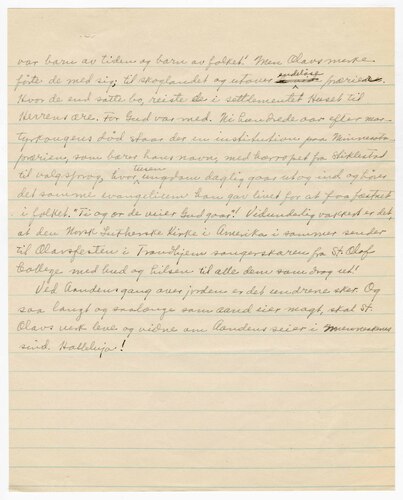 var barn av tiden og barn av folket! Men Olavs merke
førte de med sig, til skoglandet og utover endeløse prærier
Hvor de end satte bo, reiste de i settlementet Huset til
Herrens ære. For Gud var med. Ni hundrede aar efter mar-
tyrkongens død staar der en institution paa Minnesota
prærien, som bærer hans navn, med korropet fra Stiklestad
til valgsprog, hvor tusen ungdom daglig gaar ut og ind og lærer
det samme evangelium han gav livet for at faa fæstnet
i folket. "Ti og er de veier Gud gaar"! Vidunderlig vakkert er det,
at den Norsk Lutherske Kirke i Amerika i sommer sender
til Olavsfesten i Trondhjem sangerskaren fra St. Olaf
College med bud og hilsen til alle dem som drog ut!
Ved Aandens gang over jorden er det undrene sker. Og
saa langt og saalænge som aand eier magt, skal St.
Olavs verk leve og vidne om Aandens seier i menneskenes
sind. Halleluja!